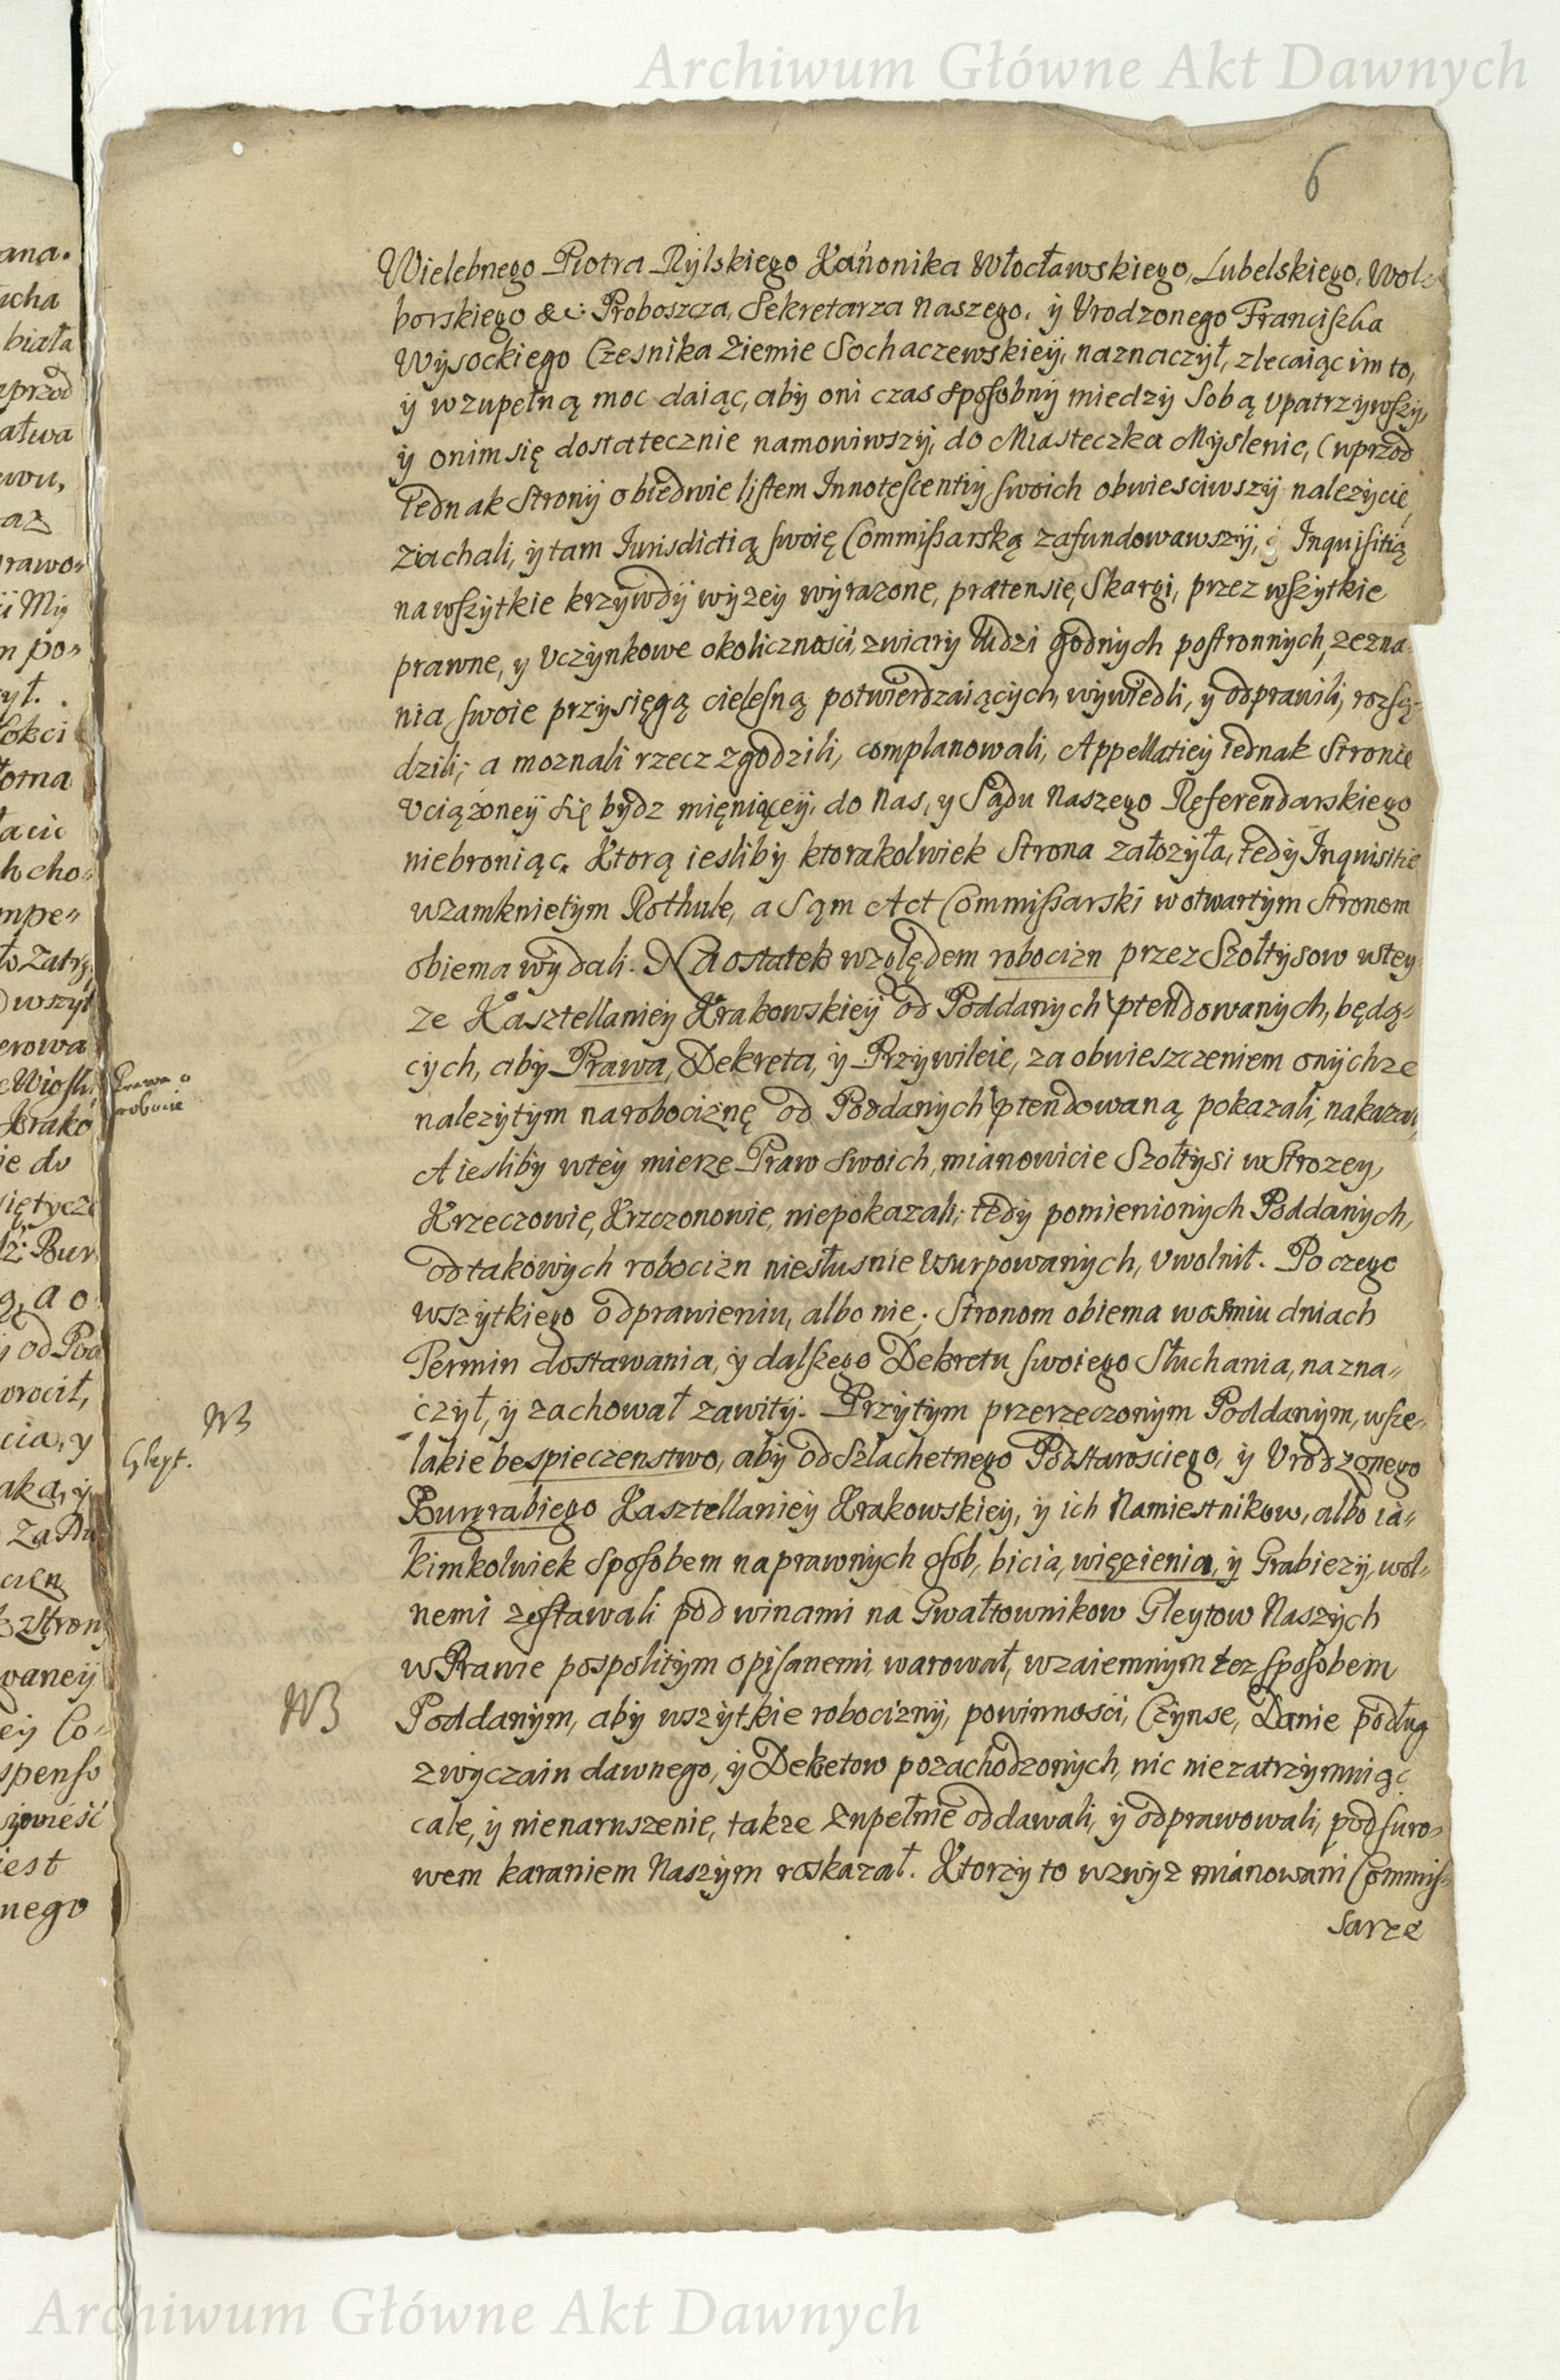 Archiwum Główne Akt Dawnych
6
Wielebnego Piotra Rylskiego Kanonika Włocławskiego, Lubelskiego, Wol-
borskiego &c: Proboszcza, Sekretarza Naszego, ÿ Vrodzonego Franciszka
Wysockiego Czesnika Ziemie Sochaczewskieÿ, naznaczył, zlecaiąc im to,
ÿ wzupełną moc daiąc, aby oni czas sposobny miedzy Sobą vpatrzywszy,
ÿ onim się dostatecznie namowiwszy, do Miasteczka Myslenic, (wprzod
Iednak Strony obiedwie listem Innotescentiy swoich obwiesciwszy nalezycie,
ziachali, ÿ tam Iurisdictią swoię Commissarską zafundowawszy, Inquisitią
na wszytkie krzywdy wyzey wyrazone, prætensie, Skargi, przez wszytkie
prawne, y vczynkowe okolicznosci, zwiary ludzi godnych postronnych, zezna-
nia swoie przysięgą cielesną potwierdzaiących, wywiedli, y odprawili, rozsą-
dzili; a moznali rzecz zgodzili, complanowali, Appellatiey iednak Stronie
vciążoney się bydz mięniącey, do Nas, y Sądu Naszego Referendarskiego
niebroniąc. Ktorą iesliby ktorakolwiek Strona założyła, tedy Inquisitie
wzamknietym Rothule, a Sąm Act Commissarski w otwartym Stronom
obiema wydali. NAostatek względem robocizn przez Szołtysow wtey
ze Kasztellaniey Krakowskiey od Poddanych ptendowanych, będą-
cych, aby Prawa, Dekreta, ÿ Przywileie, za obwieszczeniem onychze
nalezytym narobociznę od Poddanych ptendowaną pokazali, nakazał,
A iesliby wtey mierze Praw swoich, mianowicie Szołtysi w Strozey,
Krzeczowie, Krzczonowie, niepokazali; tedy pomienionych Poddanych,
od takowych robocizn niesłusnie vsurpowanych, vwolnił. Po czego
wszytkiego odprawieniu, albo nie; Stronom obiema wosmiu dniach
Termin dostawania, ÿ dalszego Dekretu swoiego Słuchania, nazna-
czył, ÿ zachował zawity. Przytym przerzeczonym Poddanym, wsze-
lakie bespieczenstwo, aby od Szlachetnego Podstarosciego, ÿ Vrodzonego
Burgrabiego Kasztellaniey Krakowskiey, ÿ ich Namiestnikow, albo ia-
kimkolwiek sposobem naprawnych osob, bicia, więzienia, ÿ Grabiezy, wol-
nemi zostawali pod winami na Gwałtownikow Gleytow Naszych
w Prawie pospolitym opisanemi, warował, wzaiemnym tez sposobem
Poddanym, aby wszytkie robocizny, powinnosci, Czynse, Danie podług
zwyczaiu dawnego, ÿ Deketow pozachodzonych, nic niezatrzymuiąc
cale, ÿ nienaruszenie, takze zupełnie oddawali, ÿ odprawowali, pod suro-
wem karaniem Naszym roskazał. Ktorzy to wzwyz mianowani Commis-
sarze
Prawa o
robocie
NB
Gleyt.
NB
ana.
ucha
biała
prawo-
po-
łokci
acie
cho-
mpe-
Zatrz
erowa
Krako
ie do
Bur
a o
od Pod
wrocił,
cia, y
Stron
waney
Co-
spenso
iest
nego
Archiwum Główne Akt Dawnych